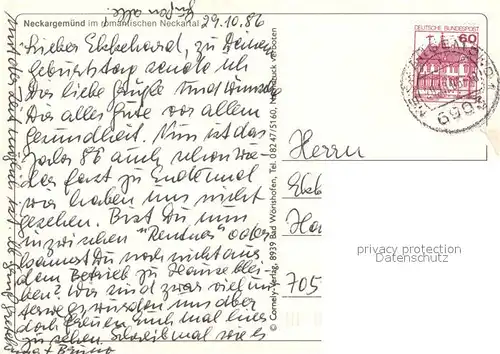 Grüßen alle.
Neckargemünd im romantischen Neckartal
29.10.86
Lieber Ekkehard, zu Deinem
Geburtstag sende ich
Dir liebe Grüße und wünsche
Dir alles Gute vor allem
Gesundheit. Nun ist das
Jahr 86 auch schon wie-
der fast zu Ende und
wir haben uns nicht
gesehen. Bist Du nun
inzwischen "Rentner" oder
kannst Du noch nicht aus
dem Betrieb zu Hause blei-
ben? Wir sind zwar viel un-
terwegs würden uns aber
doch freuen Euch mal
zu sehen. Schreib mal wie es
© Cornely-Verlag, 8939 Bad Wörishofen, Tel. 08247/5160, Nachdruck verboten
DEUTSCHE BUNDESPOST
60
Herrn
Ekk
Ha
705
privacy protection
Datenschutz